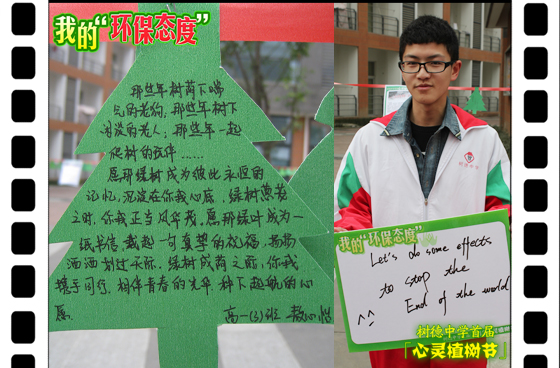 我的“环保态度”
那些年树荫下喘
气的老狗，那些年树下
老人；那些年一起
爬树的伙伴……
愿那绿树成为彼此永恒的
记忆，沉淀在你我心底，绿树
之时，你我正当风华茂，愿那绿叶成为一
纸书信，载起一句真挚的祝福，扬扬
洒洒划过天际，绿树成荫之后，你我
携手同行，相伴青春的光华，种下起航的心
愿。
高一(3)班
我的“环保态度”
Let's do some effects
to stop the
End of the world
^_^
树德中学首届
「心灵植树节」